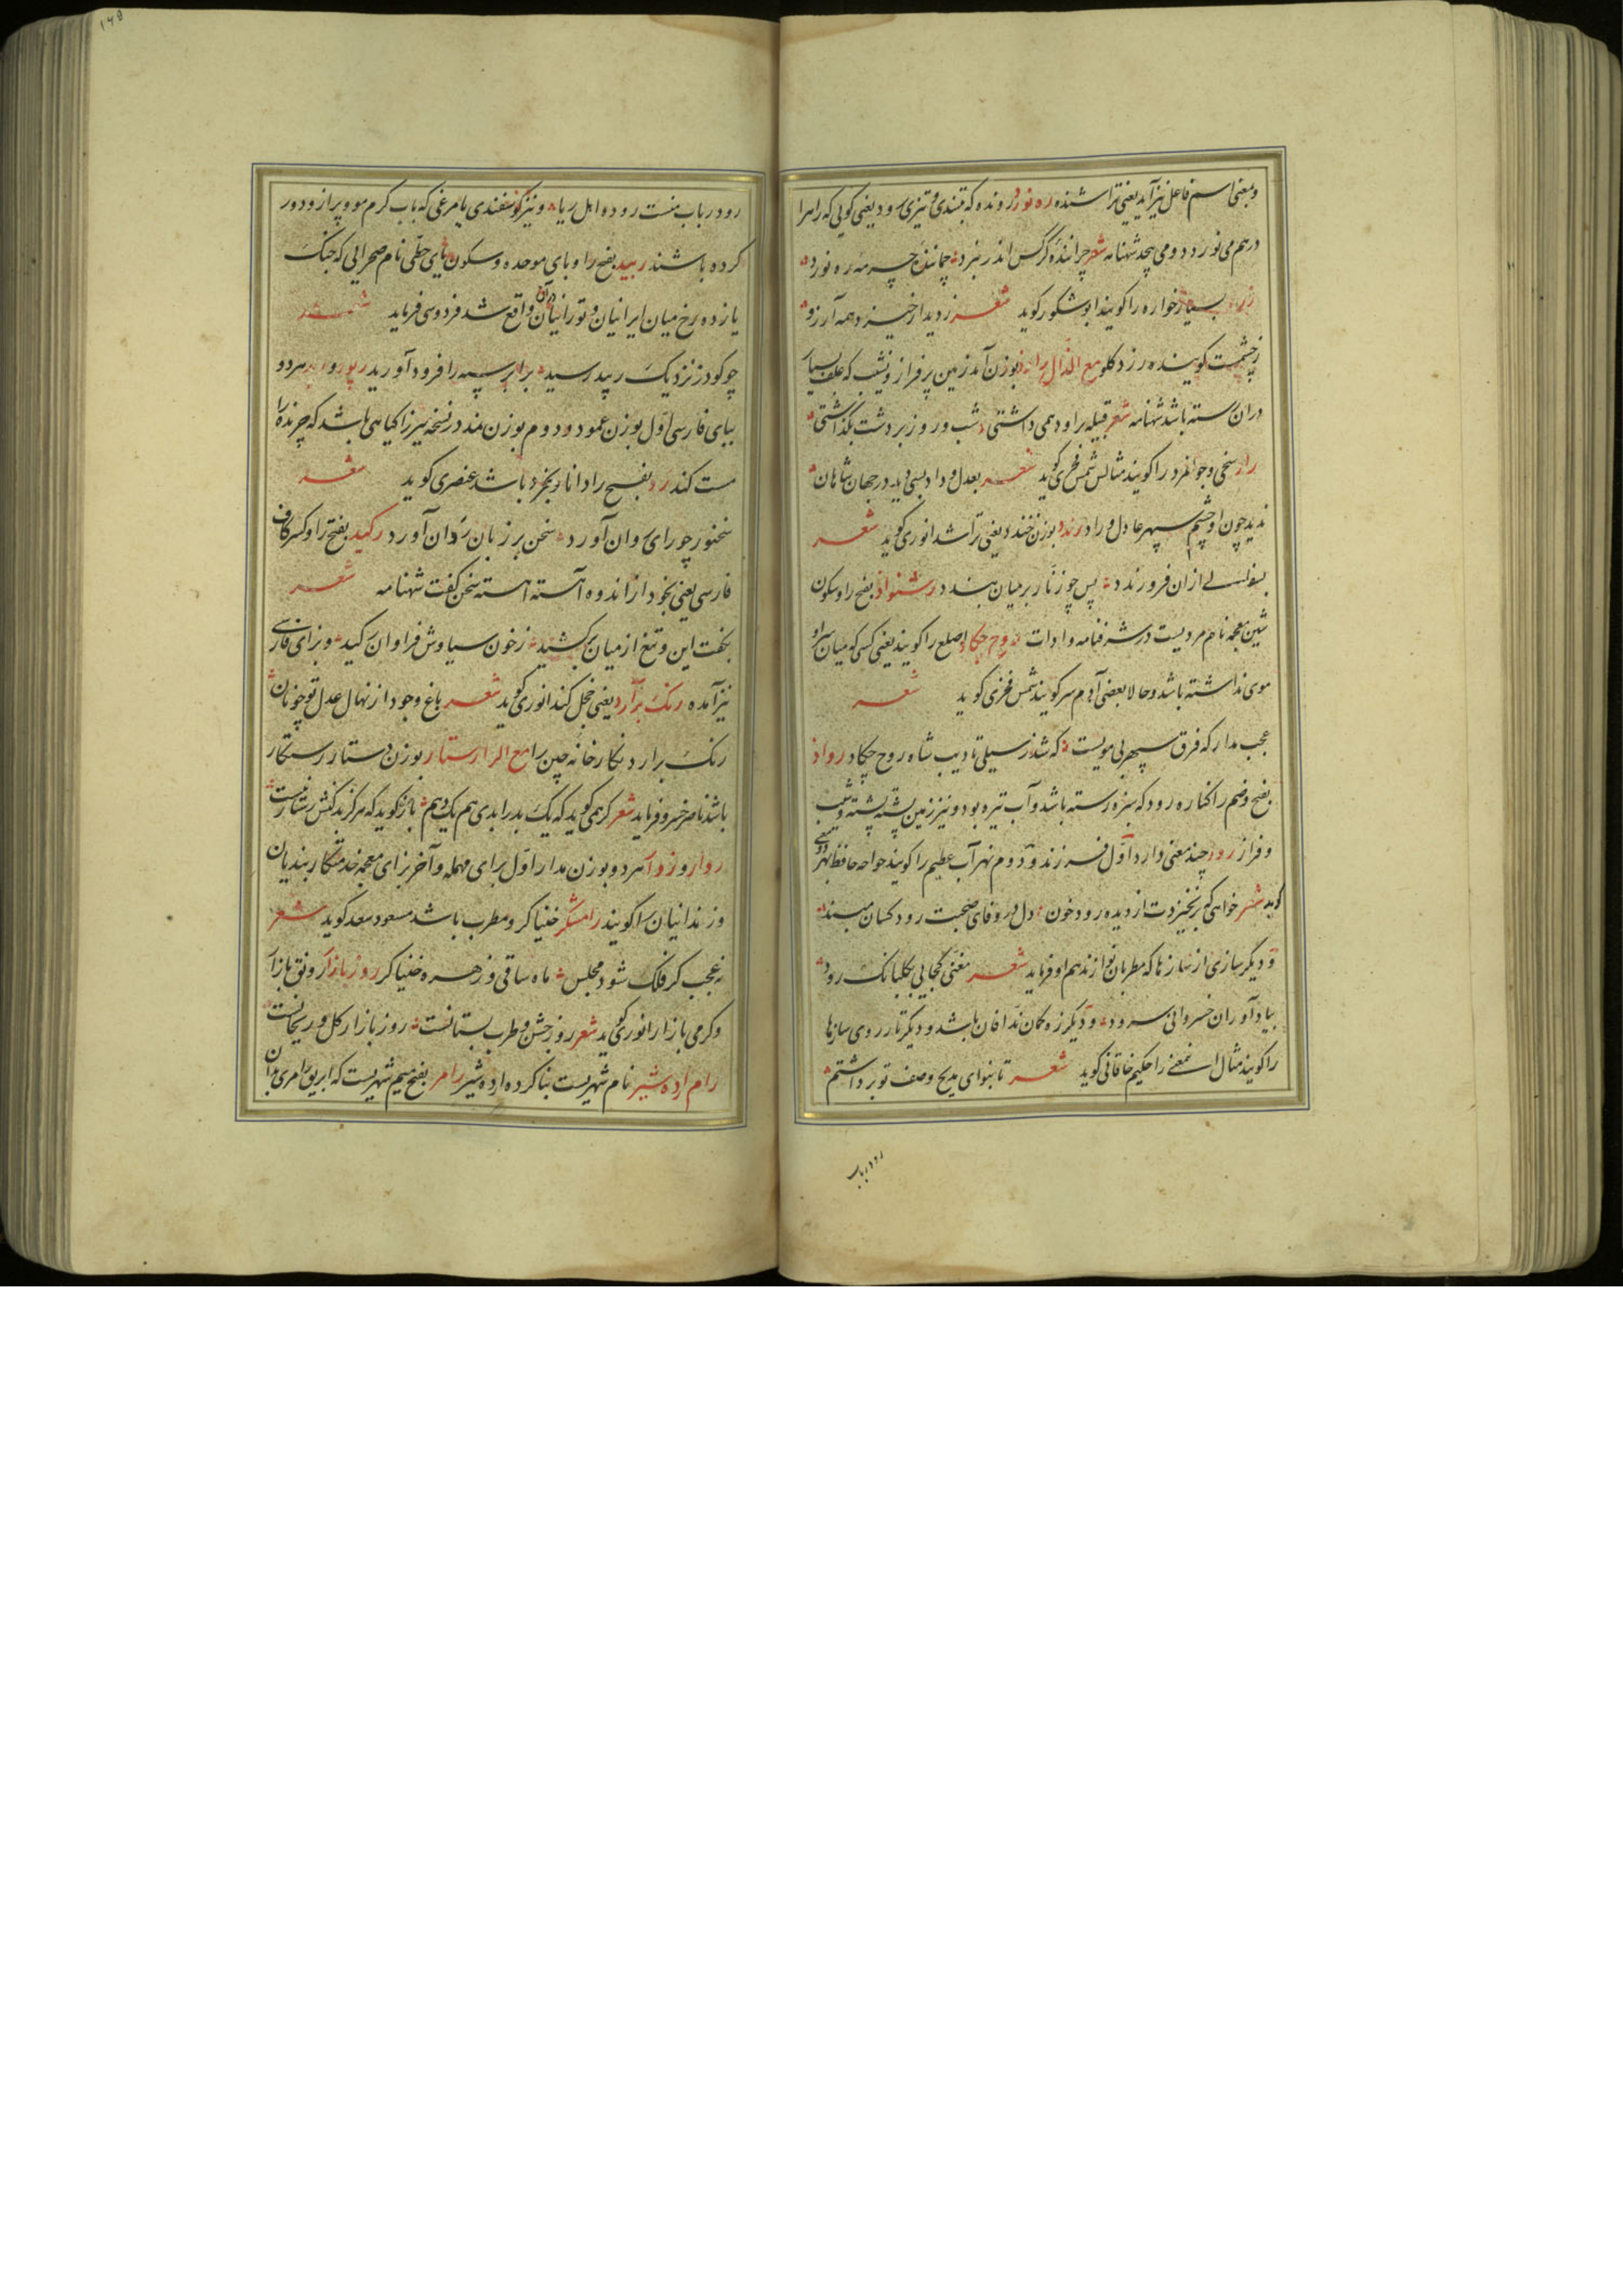 و بمعنی اسم فاعل نیز آید یعنی تراشنده ره نورد رونده که بتندی و تیزی رود یعنی کویی که راه را
در هم می نوردد و می پیچد شهنامه شعر چرانندهٔ کرکس اندر نبرد چمانندهٔ چرمه ره نورد
بسیار خواره را کویند ابو شکور کوید شعر رد دیدار خیزد همه آرزو
ز چشمست کوینده رزد کلو مع الذال راغ بوزن آمد زمین پر فراز و نشیب که علف بسیار
دران رسته باشد شهنامه شعر قبیله براود همی داشتی شب و روز بر دشت بکذاشتی
راد سخی و جوانمرد را کویند مثالش شمس فخری کوید شعر بعدل و داد بسی دید در جهان شاهان
ندید چون او چشم سپهر عادل و راد رندد بوزن خندد یعنی تراشد انوری کوید شعر
ازان فرو رندد پس چو زنار بر میان بندد رشنواد بفتح را و سکون
شین معجمه نام مردیست در شرفنامه و ادات روح چکاد اصلع را کویند یعنی کسی که میان سر او
موی نداشته باشد و حالا بعضی آدم سر کویند شمس فخری کوید شعر
عجب مدار که فرق سپهر بی مویست که شد ز سیلی تادیب شاه روح چکاد رواد
بفتح و ضم را کناره رود که سبزه رسته باشد و آب تیره بود و نیز زمین پشته پشته و نشیب
و فراز رود چند معنی دارد اول فرزند و دوم نهر آب عظیم را کویند خواجه حافظ بهر دو معنی
کوید شعر خواهی که بر نخیزدت از دیده رود خون دل در وفای صحبت رود کسان مبند
و دیکر سازی از سازها که مطربان نوازند هم او فرماید شعر مغنی کجایی بکلبانک رود
بیاد آور ان خسروانی سرود و دیکر زه کمان ندافان باشد و دیکر تار روی سازها
را کویند مثال این معنی را حکیم خاقانی کوید شعر تا بنوای مدیح وصف تو برداشتم
رود رباب
۱۴۵
رود رباب منست رود و اهل ریا و نیز کوسفندی یا مرغی که باب کرم مو و پر ازو دور
کرده باشند ربید بفتح را و بای موحده و سکون یای حطی نام صحرایی که جنک
یازده رخ میان ایرانیان و تورانیان دران واقع شد فردوسی فرماید شعر
چو کودرز نزدیک ربید رسید برابر سپه را فرود آورید رپود و هر دو
ببای فارسی اول بوزن عمود و دوم بوزن بلند در نسخه میرزا کیاهی باشد که چرنده را
مست کند رد بفتح را دانا و بخرد باشد عنصری کوید شعر
سخنور چو رای روان آورد سخن بر زبان ردان آورد رکید بفتح را و کسر کاف
فارسی یعنی بخود از اندوه آهسته آهسته سخن کفت شهنامه شعر
بکفت این و تیغ از میان برکشید ز خون سیاوش فراوان رکید و بزای فارسی
نیز آمده رنک برارد یعنی خجل کند انوری کوید شعر باغ وجود از نهال عدل تو چونان
رنک برارد نکارخانه چین را مع الرا رستار بوزن دستار رستکار
باشد ناصر خسرو فرماید شعر کر همی کوید که یک بد را بدی هم یک دهم باز کوید که هرکز بدکنش رستار نیست
روار و زوار هر دو بوزن مدار اول برای مهمله و آخر بزای معجمه خدمتکار بندیان
و زندانیان را کویند رامشکر خنیاکر و مطرب باشد مسعود سعد کوید شعر
نه عجب کر فلک شود مجلس ماه ساقی و زهره خنیاکر روز بازار رونق بازار
و کرمی بازار انوری کوید شعر روز جشن و طرب بستانست روز بازار کل و ریحانست
رام اردشیر نام شهریست بنا کرده اردشیر رامر بفتح میم شهریست که ابریق رامری بدان